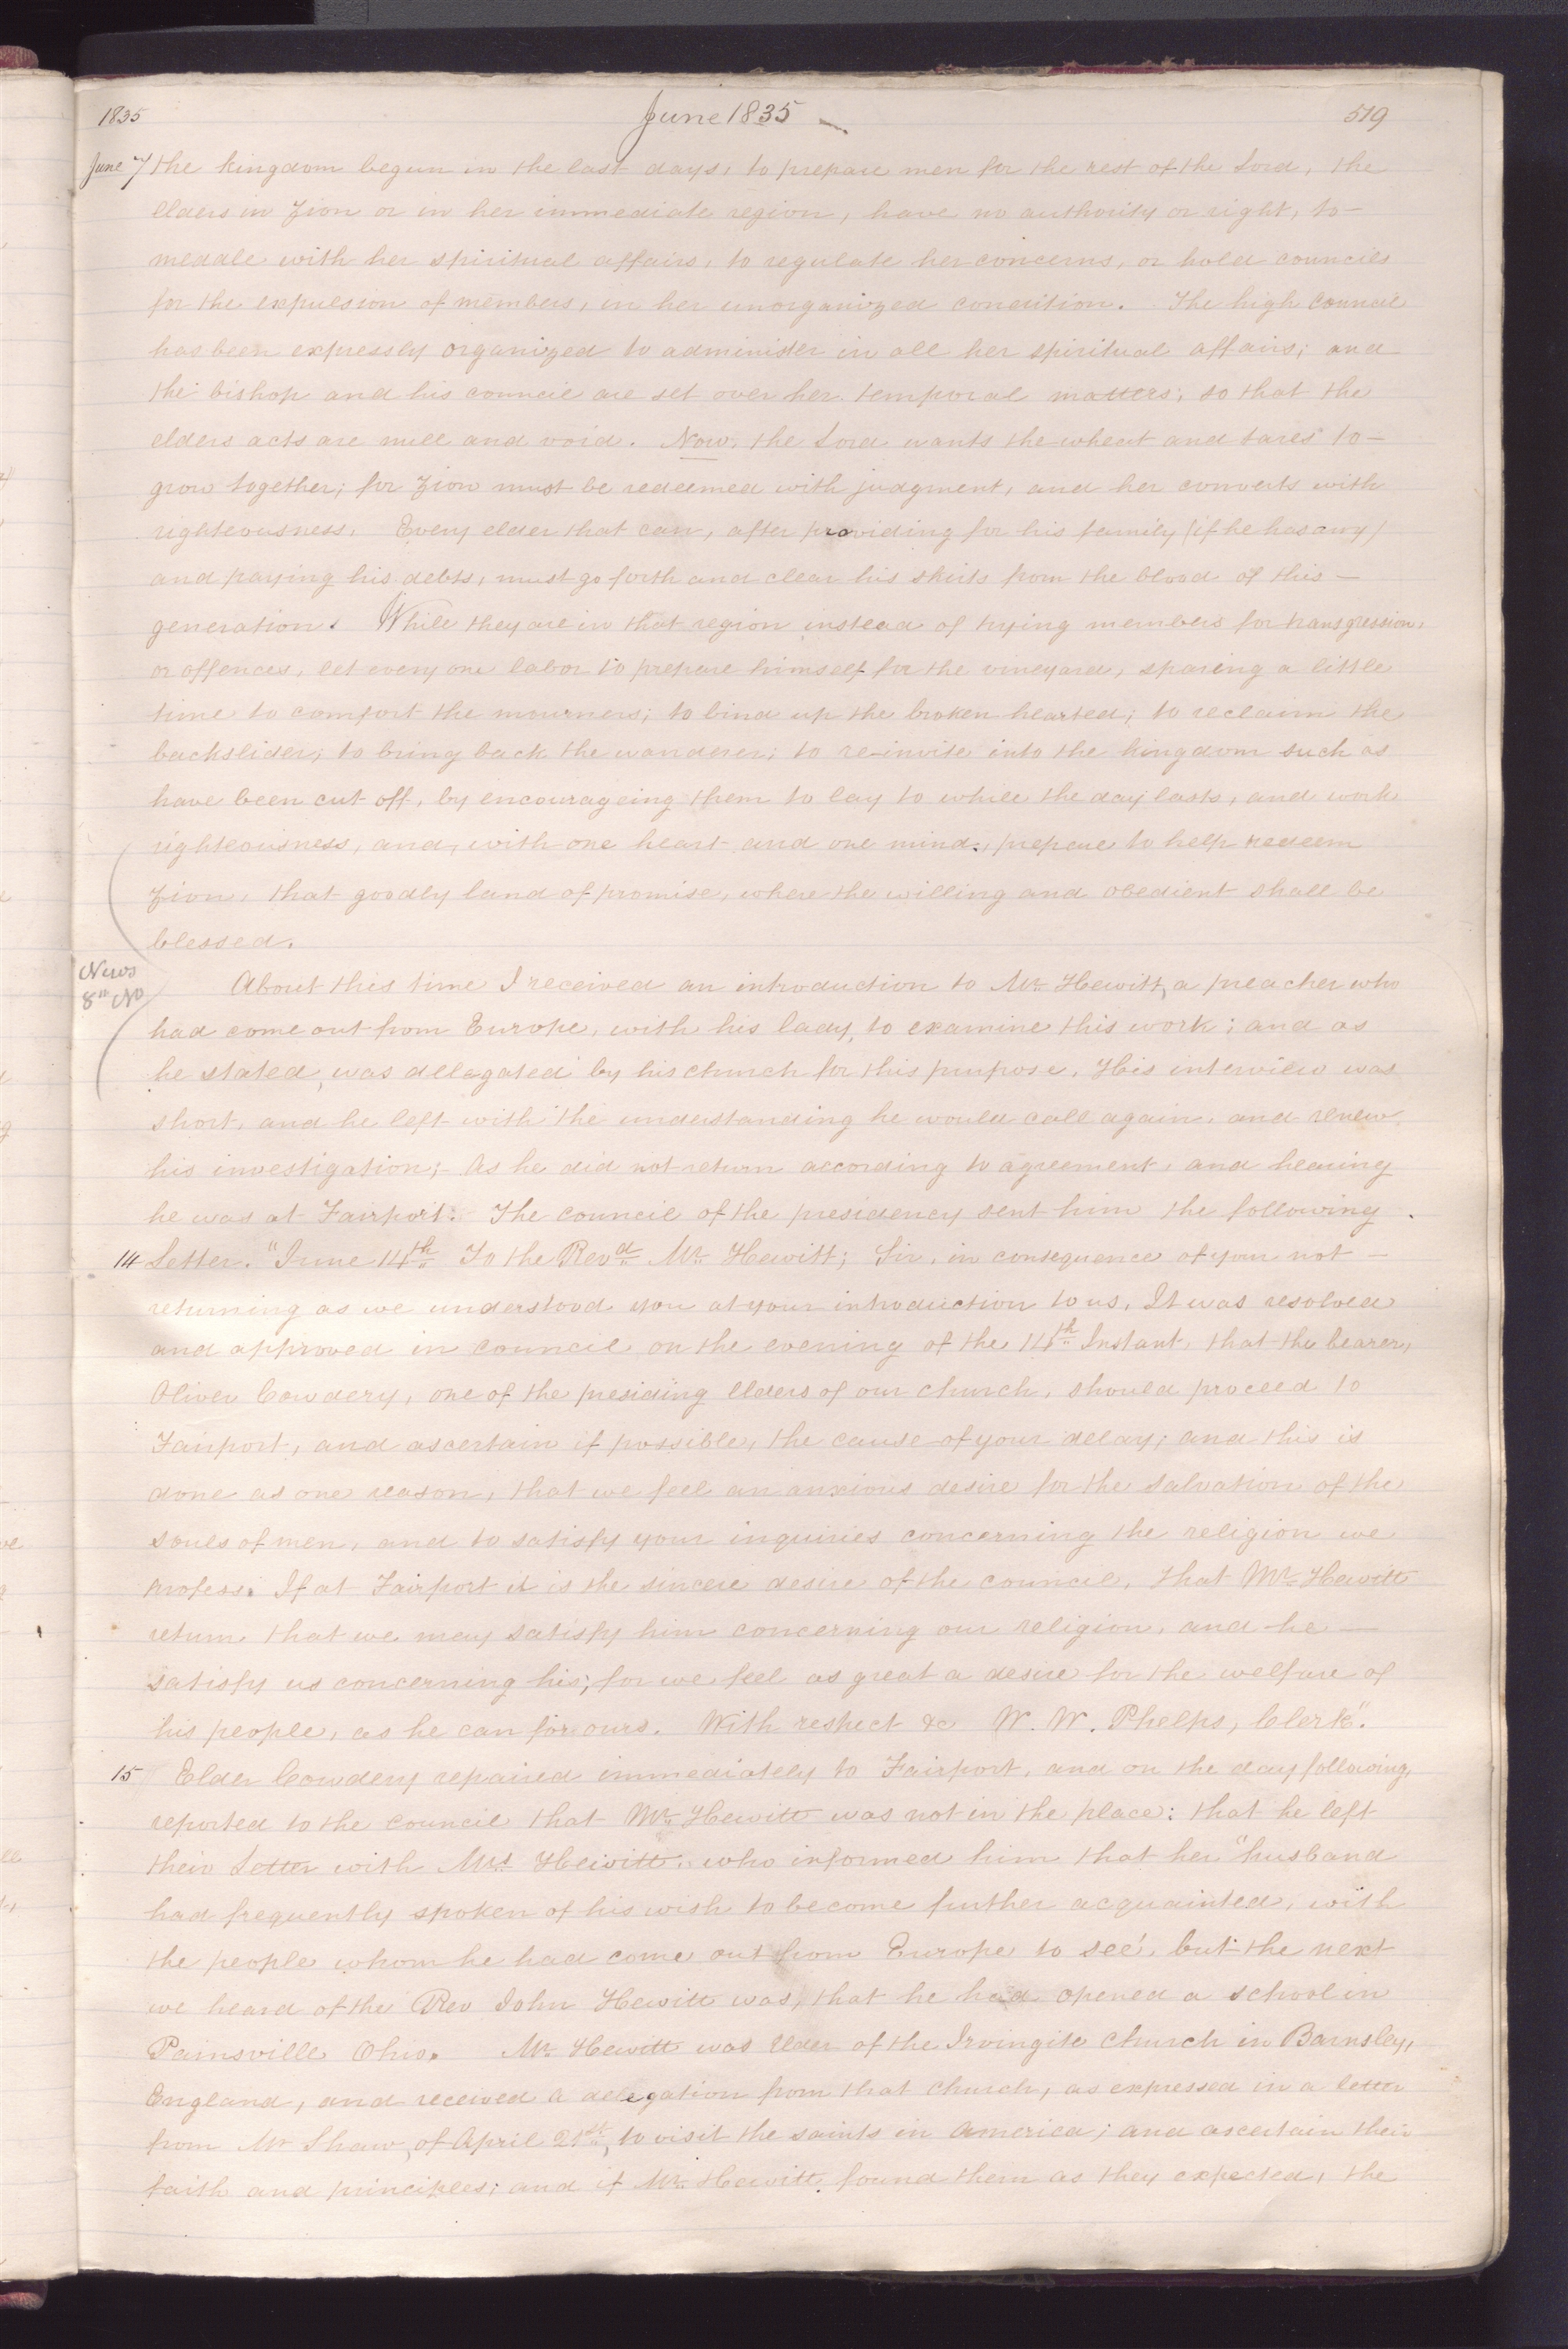 1835 June 1835 519
June 7 the kingdom begun in the last days, to prepare men for the rest of the Lord, the
elders in Zion or in her immediate region, have no authority or right, to
meddle with her spiritual affairs, to regulate her concerns, or hold councils
for the expulsion of members, in her unorganized condition. The high council
has been expressly organized to administer in all her spiritual affairs; and
the bishop and his council are set over her temporal matters; so that the
elders acts are null and void. Now, the Lord wants the wheat and tares to
grow together; for Zion must be redeemed with judgment, and her converts with
righteousness. Every elder that can, after providing for his family (if he has any)
and paying his debts, must go forth and clear his skirts from the blood of this
generation. While they are in that region instead of trying members for transgression,
or offences, let every one labor to prepare himself for the vineyard, sparing a little
time to comfort the mourners; to bind up the broken hearted; to reclaim the
backslider; to bring back the wanderer; to re-invite into the kingdom such as
have been cut off, by encourageing them to lay to while the day lasts, and work
righteousness, and, with one heart and one mind, prepare to help redeem
Zion, that goodly land of promise, where the willing and obedient shall be
blessed.
News
8th No
About this time I received an introduction to Mr. Hewitt, a preacher who
had come out from Europe, with his lady, to examine this work; and as
he stated, was delagated by his church for this purpose. His interview was
short, and he left with the understanding he would call again, and renew
his investigation; As he did not return according to agreement, and hearing
he was at Fairport. The council of the presidency sent him the following
14 Letter. "June 14th To the Revd Mr. Hewitt; Sir, in consequence of your not
returning as we understood you at your introduction to us, It was resolved
and approved in council, on the evening of the 14th Instant, that the bearer,
Oliver Cowdery, one of the presiding Elders of our church, should proceed to
Fairport, and ascertain if possible, the cause of your delay; and this is
done as one reason, that we feel an anxious desire for the salvation of the
souls of men, and to satisfy your inquiries concerning the religion we
profess. If at Fairport it is the sincere desire of the council, that Mr. Hewitt
return, that we may satisfy him concerning our religion, and he
satisfy us concerning his; for we feel as great a desire for the welfare of
his people, as he can for ours. With respect &c W. W. Phelps, Clerk".
15 Elder Cowdery repaired immediately to Fairport, and on the day following,
reported to the council that Mr. Hewitt was not in the place: that he left
their Letter with Mrs Hewitt, who informed him that her "husband
had frequently spoken of his wish to become further acquainted, with
the people whom he had come out from Europe to see", but the next
we heard of the Rev John Hewitt was, that he had opened a school in
Painsville Ohio. Mr. Hewitt was Elder of the Irvingite church in Barnsley,
England, and received a delegation from that church, as expressed in a letter
from Mr Shaw, of April 21st, to visit the saints in America; and ascertain their
faith and principles; and if Mr. Hewitt found them as they expected, the